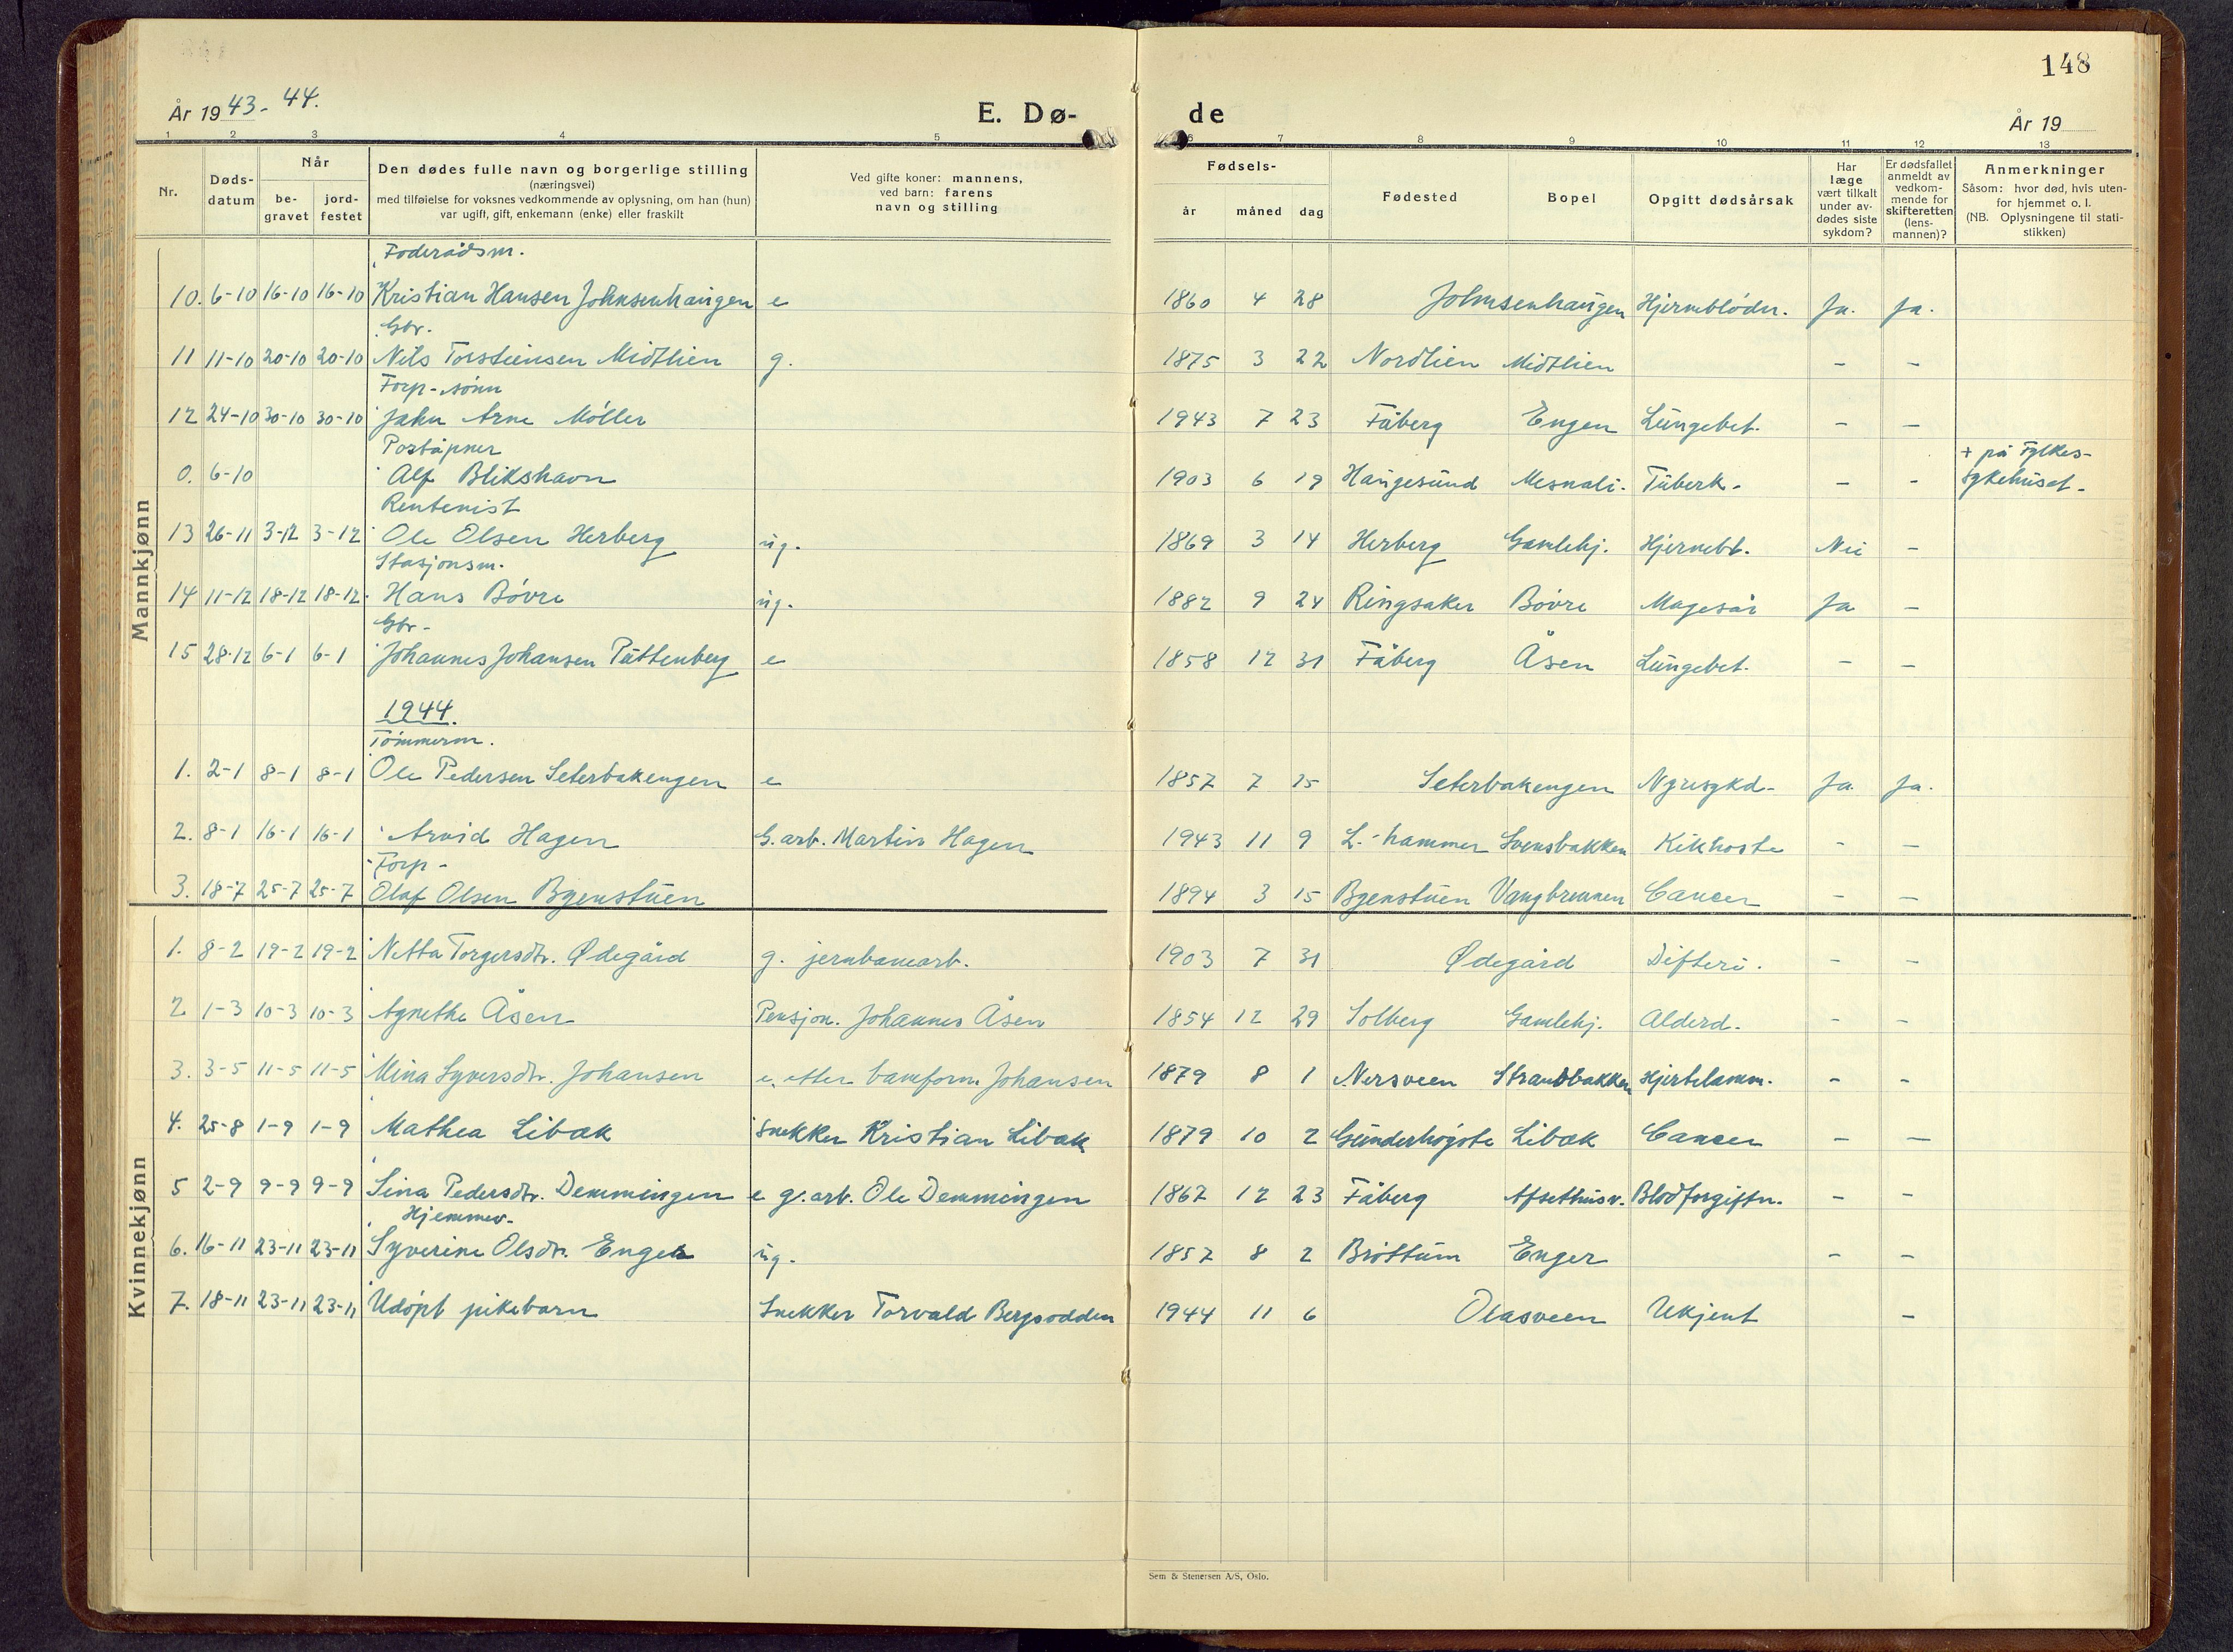 148
År 1943-44.
E. Dø-
de
År 19
1 2 3 4 5 6 7 8 9 10 11 12 13
Nr.
Døds-
datum
Når
be-
gravet
jord-
festet
Den dødes fulle navn og borgerlige stilling
(næringsvei)
med tilføielse for voksnes vedkommende av oplysning, om han (hun)
var ugift, gift, enkemann (enke) eller fraskilt
Ved gifte koner: mannens,
ved barn: farens
navn og stilling
Fødsels-
år måned dag
Fødested
Bopel
Opgitt dødsårsak
Har
læge
vært tilkalt
under av-
dødes siste
sykdom?
Er dødsfallet
anmeldt av
vedkom-
mende for
skifteretten
(lens-
mannen)?
Anmerkninger
Såsom: hvor død, hvis uten-
for hjemmet o. l.
(NB. Oplysningene til stati-
stikken)
Mannkjønn
Foderådsm.
10. 6-10 16-10 16-10 Kristian Hansen Johnsenhaugen e 1860 4 28 Johnsenhaugen Hjerneblødn. Ja. Ja.
Gbr.
11 11-10 20-10 20-10 Nils Torsteinsen Midtlien g. 1875 3 22 Nordlien Midtlien - -
Forp-sønn
12 24-10 30-10 30-10 Jahn Arne Møller 1943 7 23 Fåberg Engen Lungebet. - -
Poståpner
0. 6-10 Alf Blikshavn 1903 6 19 Haugesund Mesnali. Tuberk- - - + på Fylkes-
sykehuset-
Rentenist
13 26-11 3-12 3-12 Ole Olsen Herberg ug. 1869 3 14 Herberg Gamlehj. Hjernebl. Nei -
Stasjonsm.
14 11-12 18-12 18-12 Hans Bövre ug. 1882 9 24 Ringsaker Bövre Magesår Ja -
Gbr-
15 28-12 6-1 6-1 Johannes Johansen Puttenberg e 1858 12 31 Fåberg Åsen Lungebet. - -
1944.
Tömmerm.
1. 2-1 8-1 8-1 Ole Pedersen Seterbakengen e 1857 7 15 Seterbakengen Nyresykd- Ja. Ja.
2. 8-1 16-1 16-1 Arvid Hagen G. arb. Martin Hagen 1943 11 9 L.-hammer Svensbakken Kikhoste - -
Forp-
3. 18-7 25-7 25-7 Olaf Olsen Byenstuen 1894 3 15 Byenstuen Vangbrunnen Cancer - -
Kvinnekjønn
1. 8-2 19-2 19-2 Netta Torgersdtr. Ødegård g. jernbanearb. 1903 7 31 Ødegård Difteri. - -
2 1-3 10-3 10-3 Agnethe Åsen Pensjon. Johannes Åsen 1854 12 29 Solberg Gamlehj. Alderd. - -
3. 3-5 11-5 11-5 Mina Syversdtr. Johansen e. etter banform. Johansen 1879 8 1 Nersveen Strandbakken Hjertelamm. - -
4. 25-8 1-9 1-9 Mathea Libak Snekker Kristian Libak 1879 10 2 Gunderhøgste Libak Cancer - -
5 2-9 9-9 9-9 Sina Pedersdtr. Demmingen e g. arb. Ole Demmingen 1867 12 23 Fåberg Afsethusv. Blodforgiftn. - -
Hjemmev-
6. 16-11 23-11 23-11 Syverine Olsdtr. Enger ug. 1857 8 2 Bröttum Enger - -
7. 18-11 23-11 23-11 Udöpt pikebarn Snekker Torvald Bergsodden 1944 11 6 Olasveen Ukjent -
Sem & Stenersen A/S, Oslo.